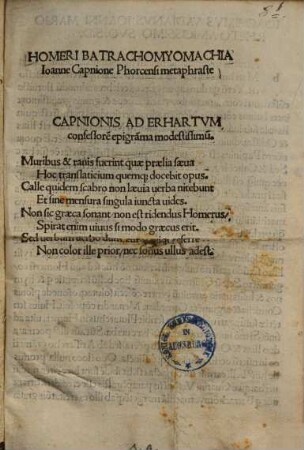 HOMERI BATRACHOMYOMACHIA
Ioanne Capnione Phorcensi metaphraste
CAPNIONIS AD ERHARTVM
confessorē epigrāma modestissimū.
Muribus & ranis fuerint quæ prælia sæua
Hoc translaticium quemq; docebit opus.
Calle quidem scabro non læuia uerba nitebunt
Et sine mensura singula iuncta uides.
Non sic græca sonant non est ridendus Homerus/
Spirat enim uiuus si modo græcus erit.
Sed uerbum uerbo dum referre
Non color ille prior/nec sonus ullus adest.
IN